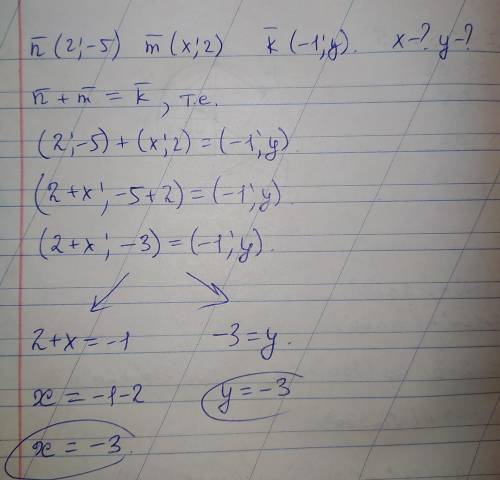 n̅ (2;-5) m̅ (x;2) k̅ (-1;y). x-? y-?
n̅ + m̅ = k̅, т.е.
(2;-5) + (x;2) = (-1;y)
(2+x; -5+2) = (-1;y).
(2+x; -3) = (-1;y).
2+x = -1 -3 = y.
x = -1-2 y = -3
x = -3.